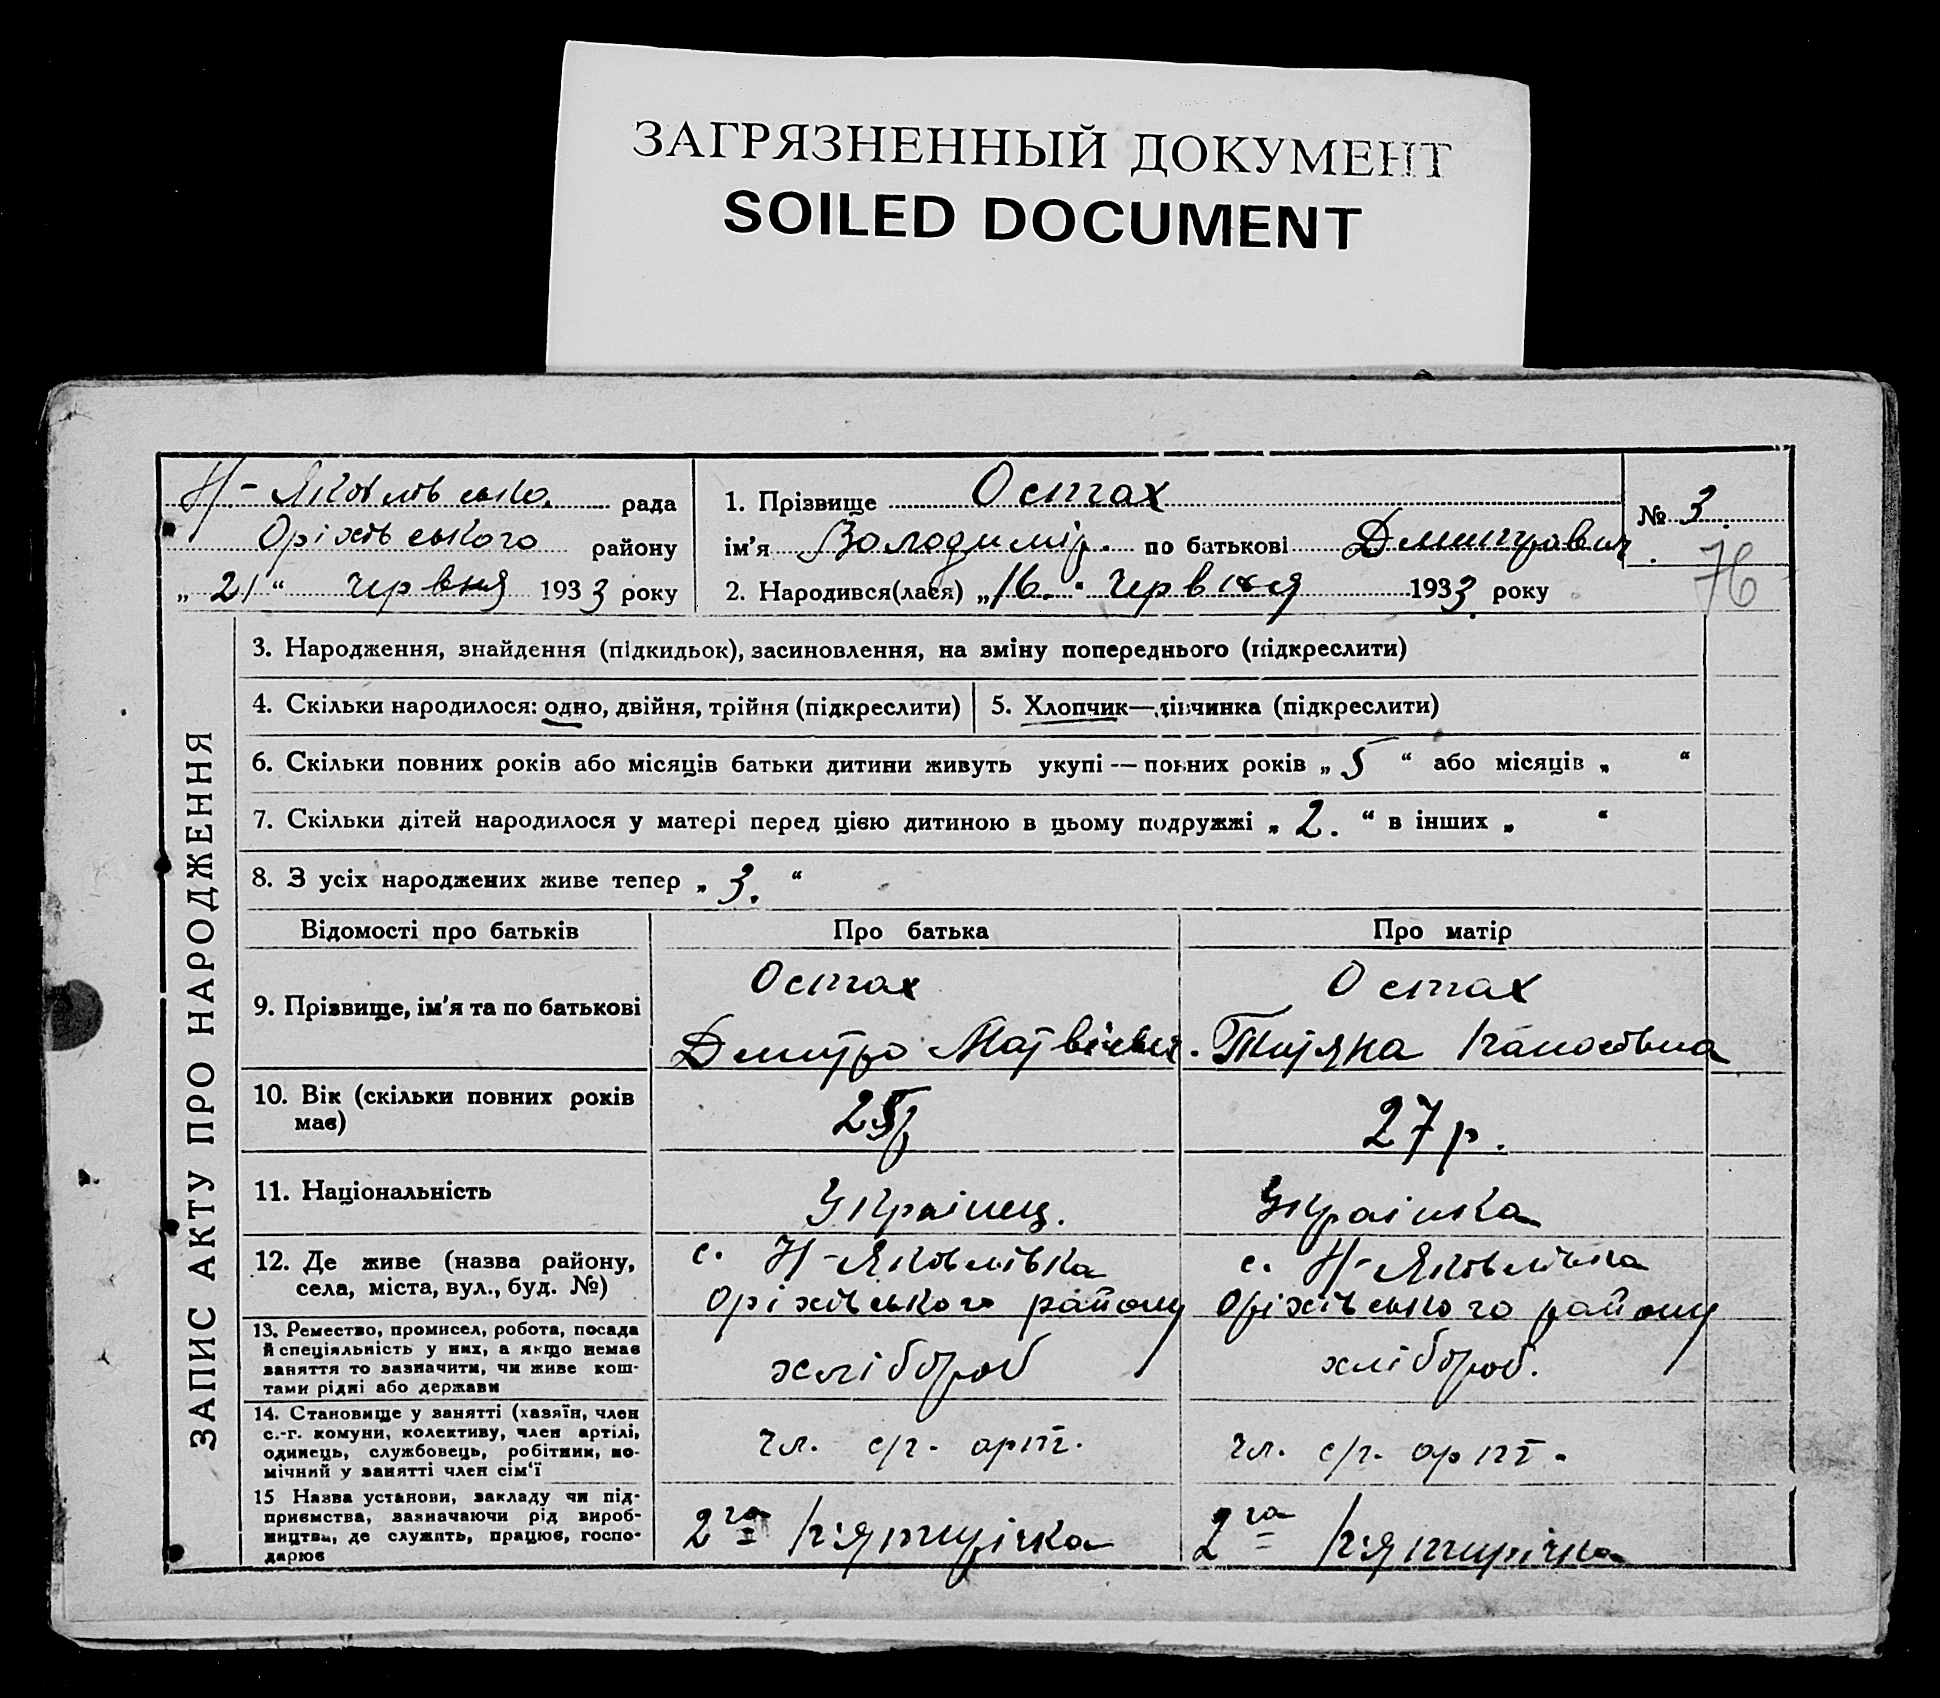 ЗАГРЯЗНЕННЫЙ ДОКУМЕНТ
SOILED DOCUMENT
Н-Яковлівська рада
Оріхівського району
„ 21 “ червня 1933 року
1. Прізвище Остах
ім’я Володимір. по батькові Дмитрович
2. Народився(лася) „16. “ червня 1933 року
№ 3.
76
ЗАПИС АКТУ ПРО НАРОДЖЕННЯ
3. Народження, знайдення (підкидьок), засиновлення, на зміну попереднього (підкреслити)
4. Скільки народилося: одно, двійня, трійня (підкреслити)
5. Хлопчик—дівчинка (підкреслити)
6. Скільки повних років або місяців батьки дитини живуть укупі — повних років „ 5 “ або місяців „ “
7. Скільки дітей народилося у матері перед цією дитиною в цьому подружжі „ 2. “ в інших „ “
8. З усіх народжених живе тепер „ 3. “
Відомості про батьків
Про батька
Про матір
9. Прізвище, ім’я та по батькові
Остах
Дмитро Матвієвич.
Остах
Тит'яна
10. Вік (скільки повних років
має)
25р
27 р.
11. Національність
Українец.
Українка
12. Де живе (назва району,
села, міста, вул., буд. №)
с. Н-Яковлівка
Оріхівського району
с. Н-Яковлівка
Оріхівського району
13. Ремество, промисел, робота, посада
й спеціяльність у них, а якщо немає
заняття то зазначити, чи живе кош-
тами рідні або держави
хлібороб
хлібороб.
14. Становище у занятті (хазяїн, член
с.-г. комуни, колективу, член артілі,
одинець, службовець, робітник, по-
мічний у занятті член сім’ї
чл. с/г. арт.
чл. с/г. арт.
15 Назва установи, закладу чи під-
приємства, зазначаючи рід вироб-
ництва, де служить, працює, госпо-
дарює
2га п'ятирічка
2га п'ятирічка